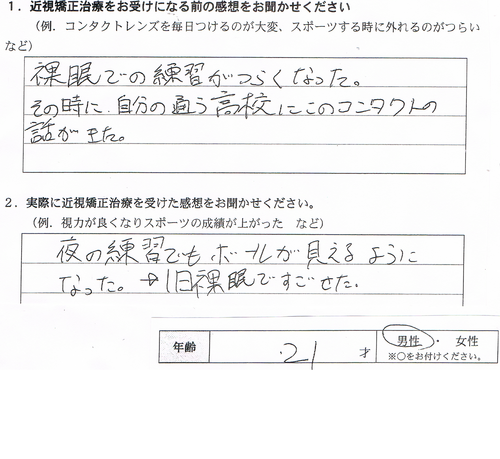 １．近視矯正治療をお受けになる前の感想をお聞かせください
（例．コンタクトレンズを毎日つけるのが大変、スポーツする時に外れるのがつらい
など）
裸眼での練習がつらくなった。
その時に、自分の通う高校にこのコンタクトの
話がきた。
２．実際に近視矯正治療を受けた感想をお聞かせください。
（例．視力が良くなりスポーツの成績が上がった　など）
夜の練習でもボールが見えるように
なった。→1日裸眼ですごせた。
年齢 21 才 男性・女性
※○をお付けください。